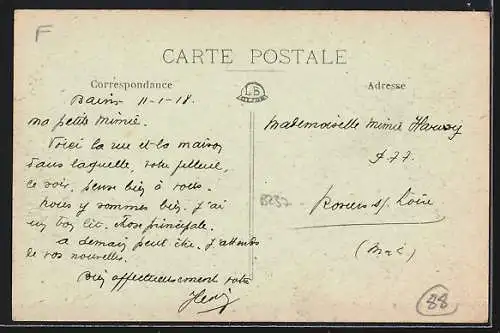 F
CARTE POSTALE
Correspondance
LB
Adresse
Bains 11-1-18.
ma petite Mimie.
Voici la rue et la maison
dans laquelle, votre filleul,
ce soir, pense bien à vous.
nous y sommes bien. J'ai
un bon lit. chose principale.
a demain peut être. J'attends
de vos nouvelles.
Bien affectueusement votre
Henri
Mademoiselle Mimie
Rosiers s/ Loire
(M et L)
88